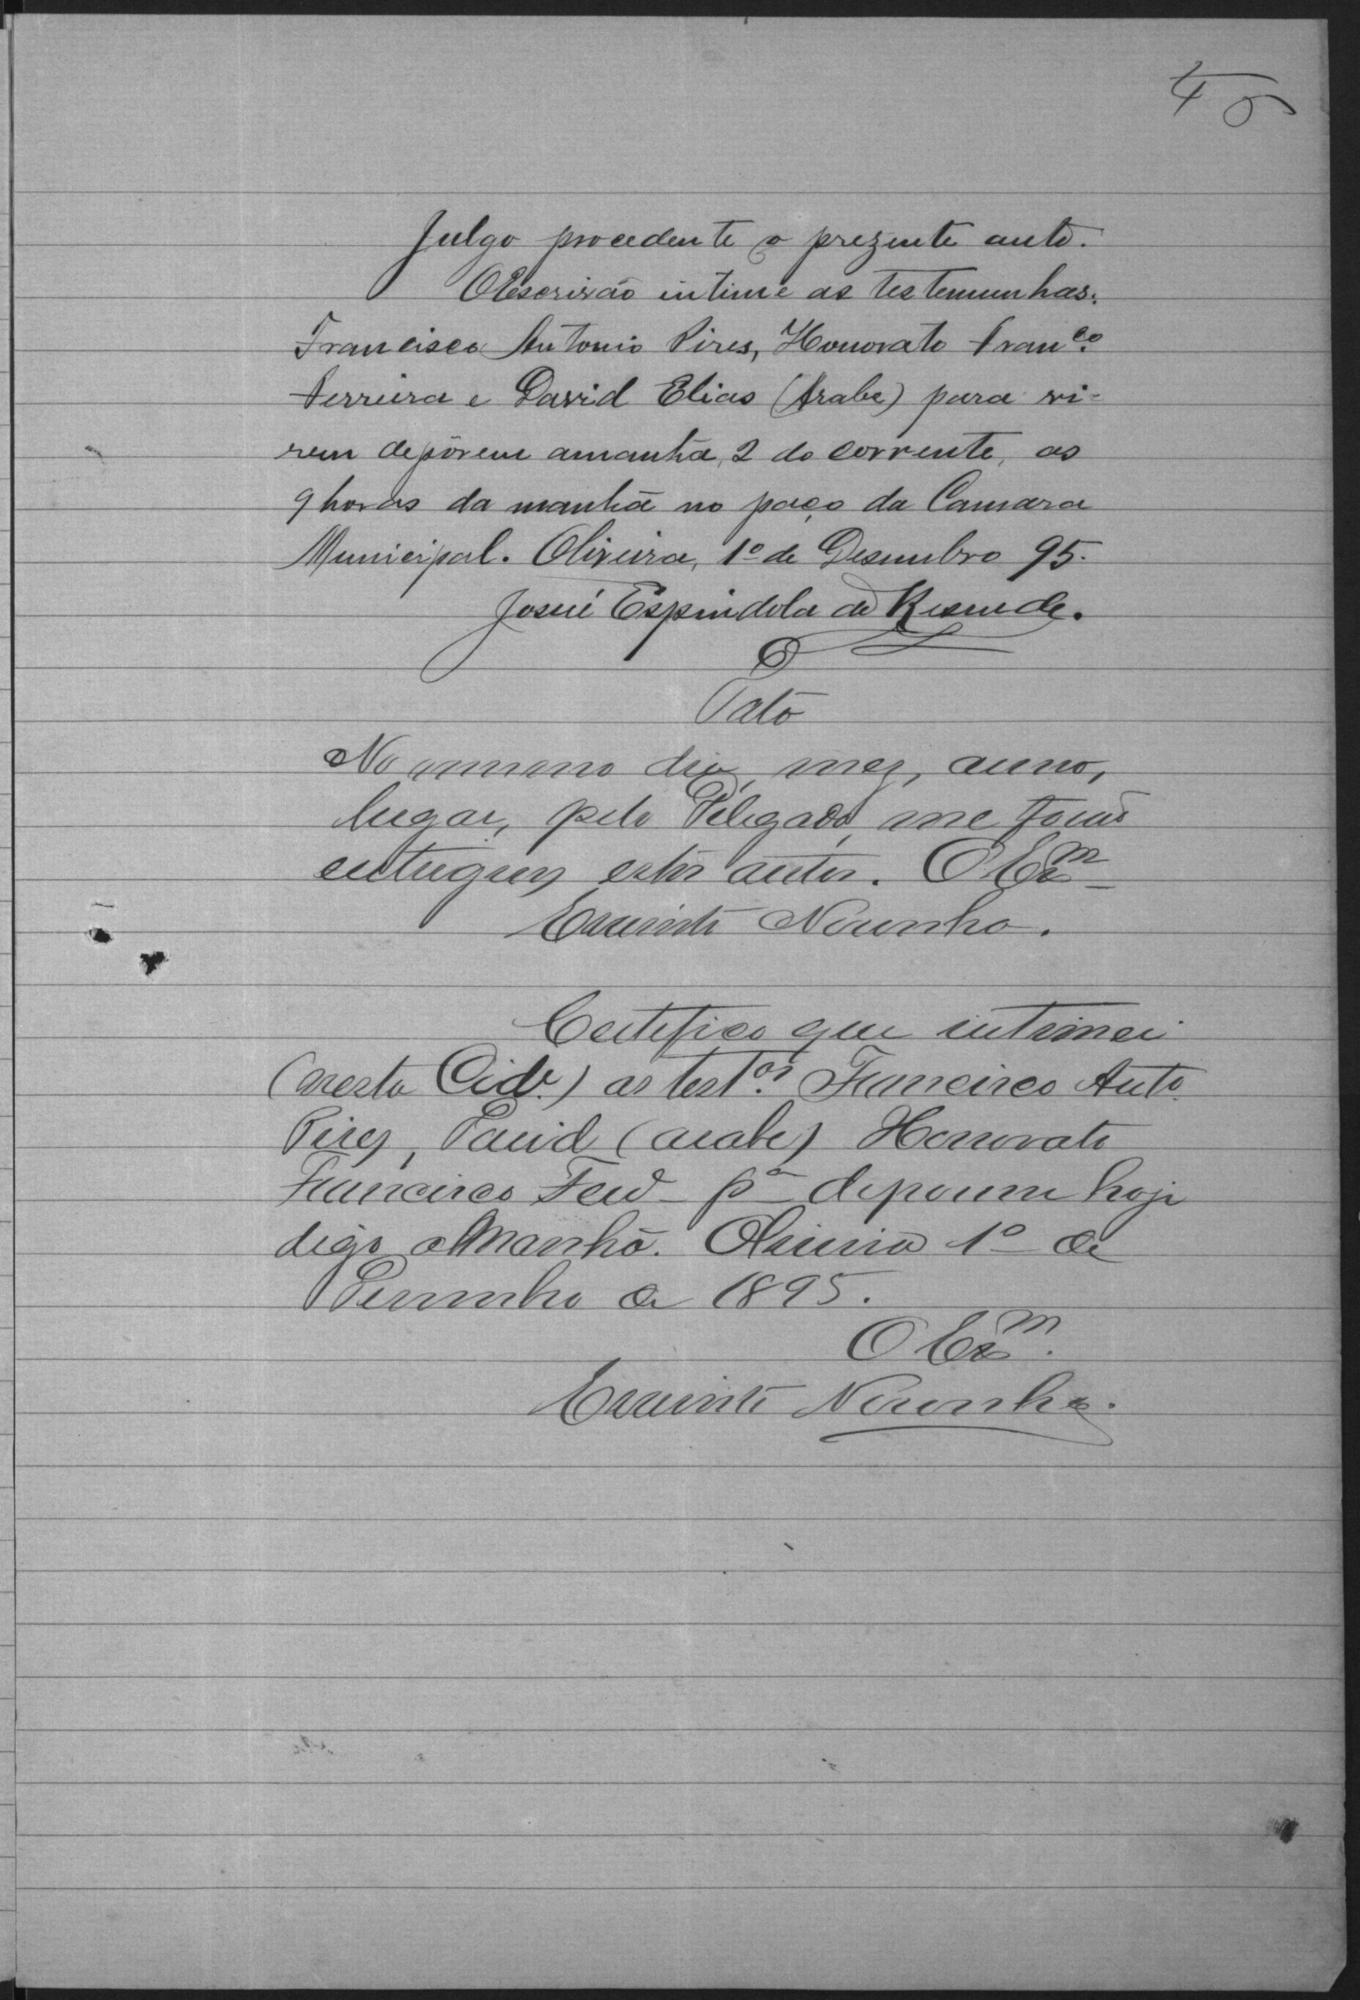 45
Julgo procedente o prezente auto.
O Escrivão intime as testemunhas.
Francisco Antonio Pires, Honorato Fran.co
Ferreira e David Elias (Arabe) para vi-
rem depôrem amanhã, 2 do corrente, as
9 horas da manhã no paço da Camara
Municipal. Oliveira, 1º de Desembro 95.
Josué Espindola de Resende.
Data
No mesmo dia, mez, anno,
lugar, pelo Delegado me forão
entregues estes autos. O Esm
Noronha.
Certifico que intimei
(nesta Cide.) as test.as Francisco Anto.
Pires, David (arabe) Honorato
Francisco Ferra pa deporem hoje
digo amanhã. Oliveira 1º de
Dezembro de 1895.
O Esm.
Noronha.